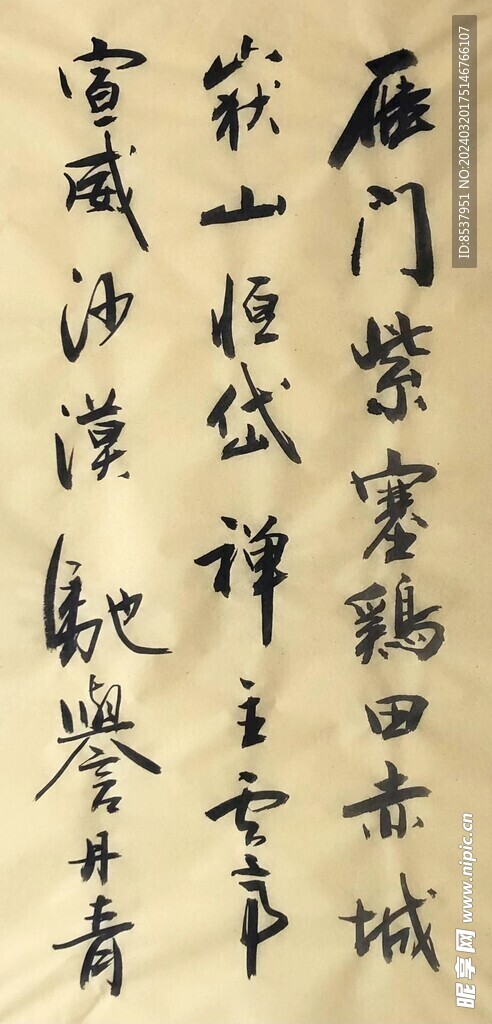 雁门紫塞鷄田赤城
嶽山恒岱禅主云亭
宣威沙漠馳譽丹青
ID:8537951 NO:20240320175146766107
昵享网 www.nipic.cn